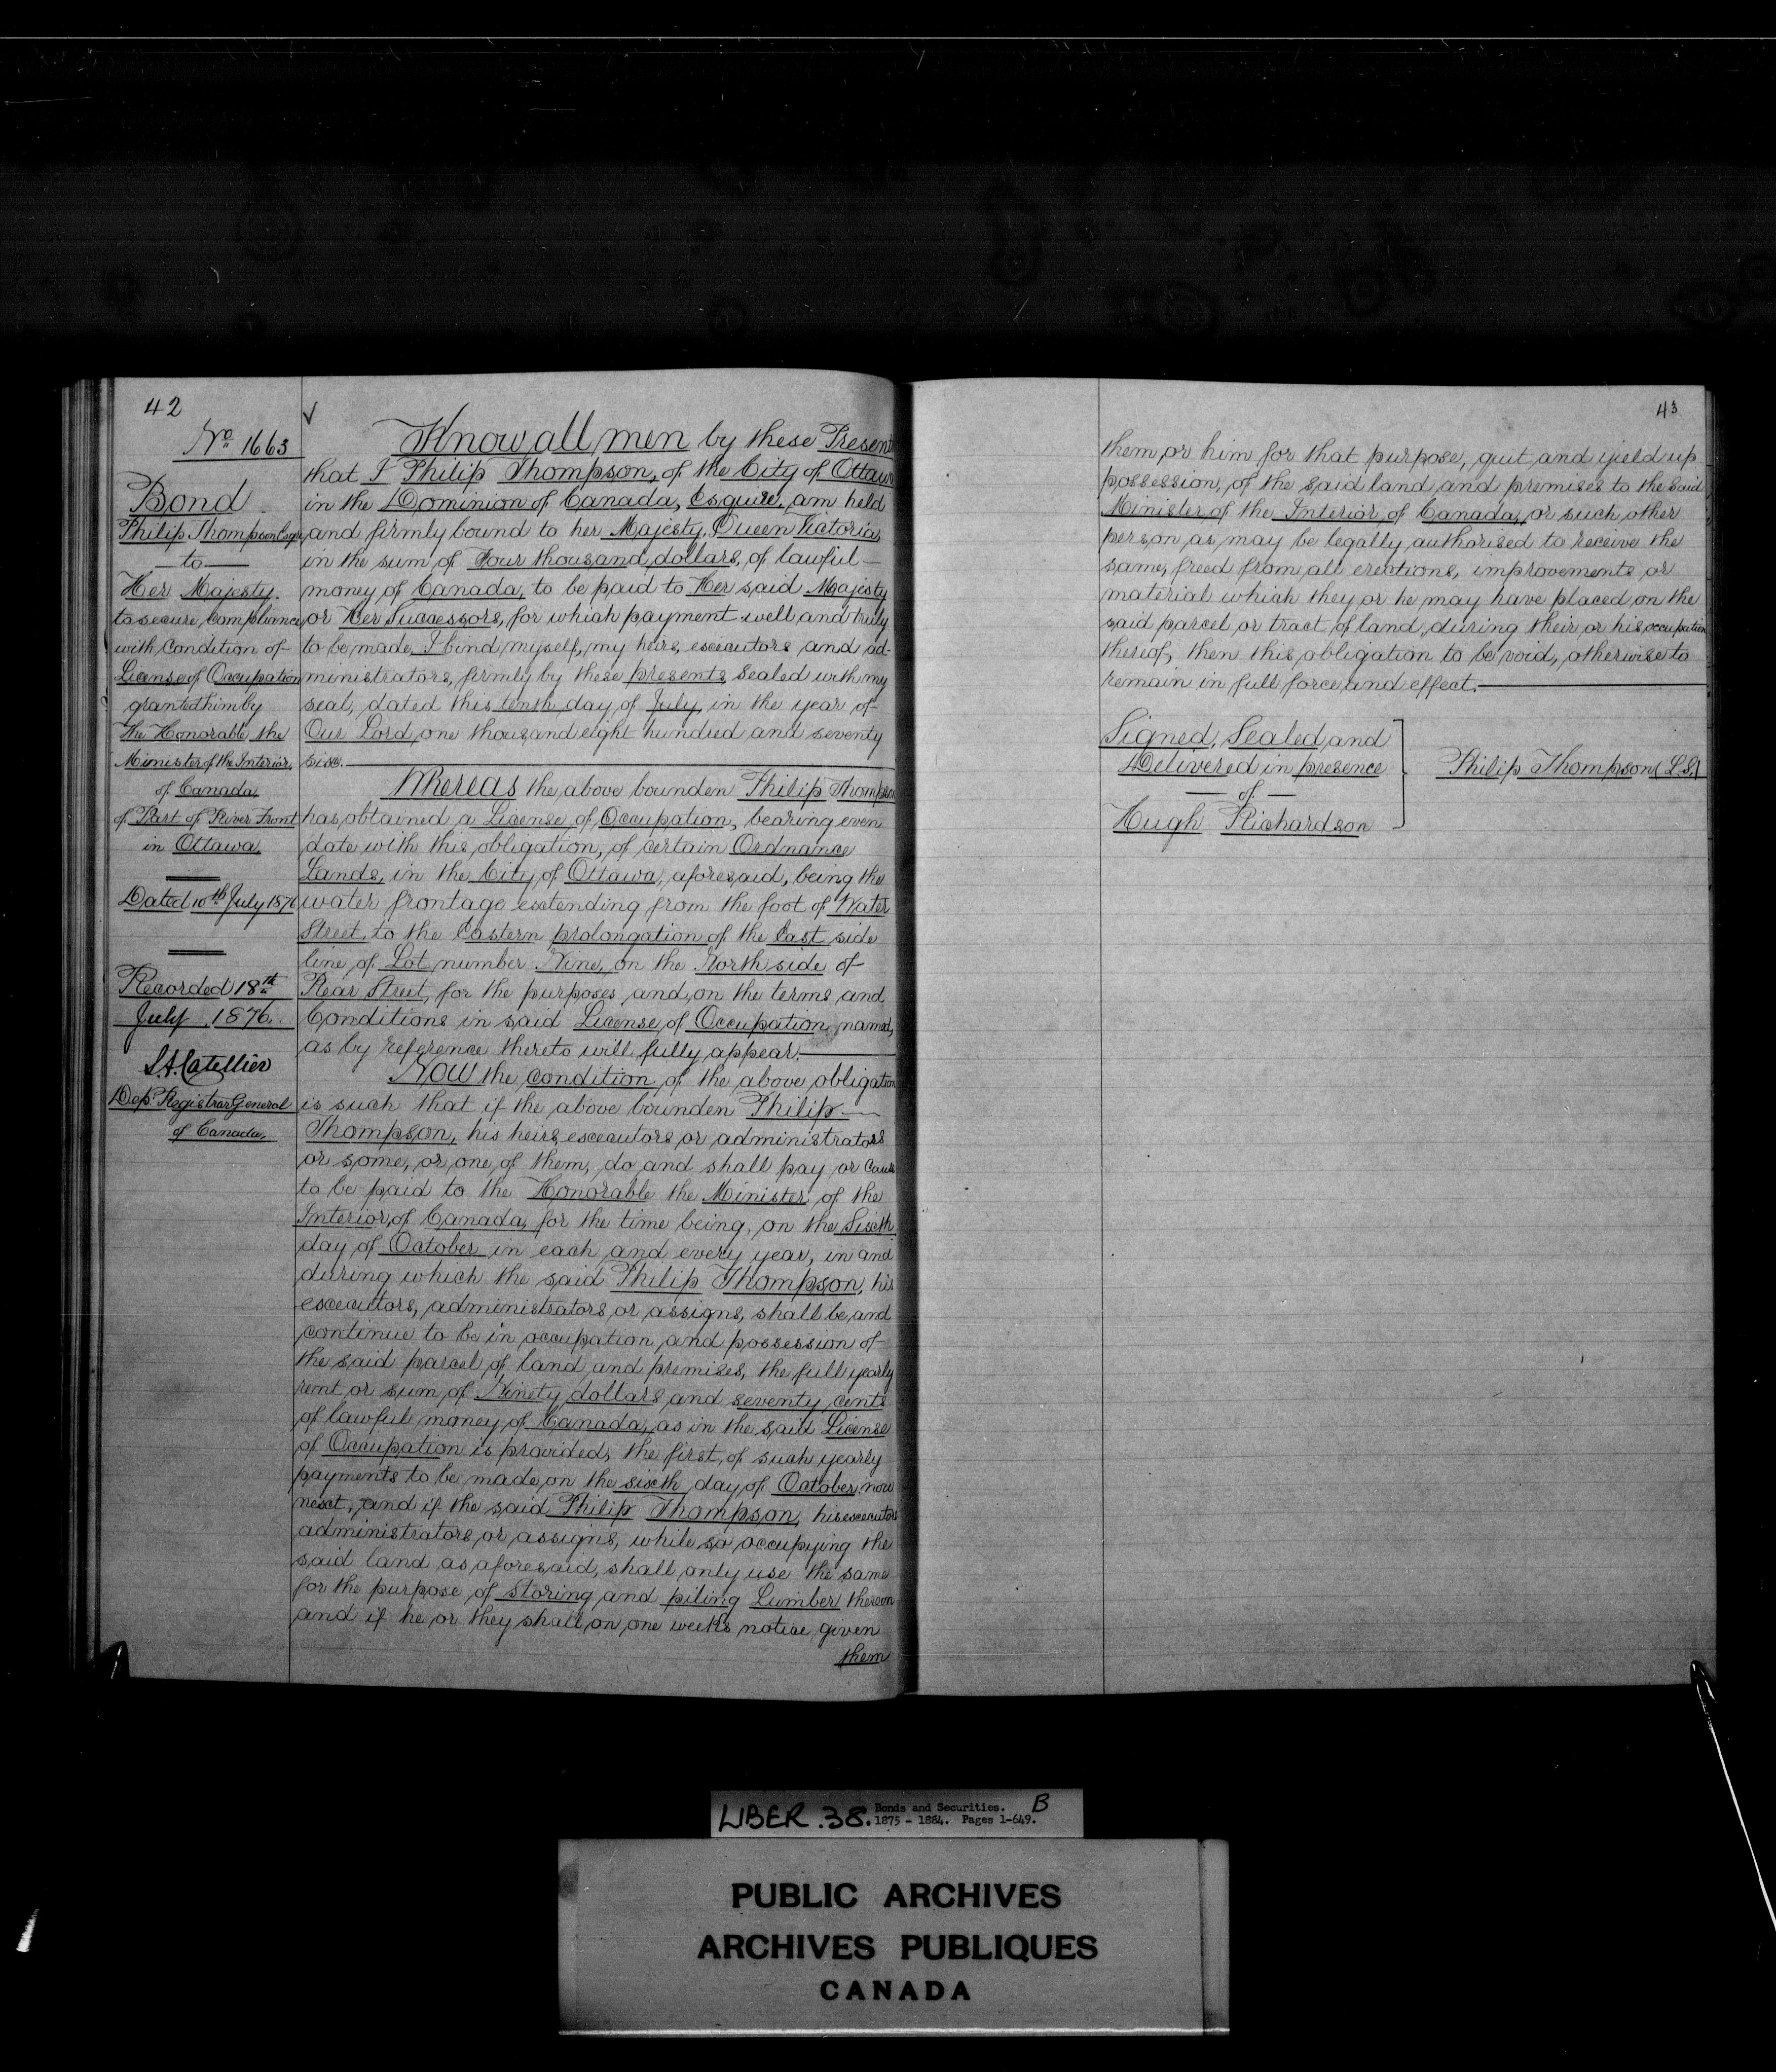 42
No 1663
Bond
Philip Thompson Esqr.
to
Her Majesty.
to secure compliance
with condition of
License of Occupation
granted him by
The Honorable the
Minister of the Interior
of Canada
of Part of River Front
in Ottawa.
Dated 10th July 1876
Recorded 18th
July 1876.
L.A. Catellier
Dep. Registrar General
of Canada.
Know all men by these Presents
that I Philip Thompson, of the City of Ottawa
in the Dominion of Canada, Esquire, am held
and firmly bound to her Majesty, Queen Victoria,
in the sum of Four thousand dollars, of lawful
money of Canada, to be paid to Her said Majesty
or Her Successors, for which payment well and truly
to be made, I bind myself, my heirs, executors and ad-
ministrators, firmly by these presents, Sealed with my
seal, dated this tenth day of July, in the year of
Our Lord, one thousand eight hundred and seventy
six.
Whereas the above bounden Philip Thompson
has obtained a License of Occupation, bearing even
date with this obligation, of certain Ordnance
Lands, in the City of Ottawa, aforesaid, being the
water frontage extending from the foot of Water
Street, to the Eastern prolongation of the East side
line of Lot number Nine, on the North side of
Rear Street, for the purposes and on the terms and
Conditions in said License of Occupation named,
as by reference thereto will fully appear.
Now the condition of the above obligation
is such that if the above bounden Philip
Thompson, his heirs, executors or administrators
or some, or one of them, do and shall pay or cause
to be paid to the Honorable the Minister of the
Interior, of Canada, for the time being, on the Sixth
day of October in each and every year, in and
during which the said Philip Thompson, his
executors, administrators or assigns, shall be and
continue to be in occupation and possession of
the said parcel of land and premises, the full yearly
rent or sum of Ninety dollars and seventy cents
of lawful money of Canada, as in the said License
of Occupation is provided, the first, of such yearly
payments to be made on the sixth day of October now
next, and if the said Philip Thompson, his executors
administrators or assigns, while so occupying the
said land as aforesaid, shall only use the same
for the purpose of storing and piling Lumber thereon
and if he or they shall on one weeks notice, given
them
43
them or him for that purpose, quit and yield up
possession, of the said land and premises to the said
Minister of the Interior of Canada, or such other
person as may be legally authorised to receive the
same, freed from all erections, improvements or
material which they or he may have placed on the
said parcel or tract of land, during their or his occupation
thereof, then this obligation to be void, otherwise to
remain in full force and effect.
Signed, Sealed and
Delivered in presence
of
Hugh Richardson
Philip Thompson (L.S.)
LIBER .38. Bonds and Securities. B
1875 - 1884. Pages 1-649.
PUBLIC ARCHIVES
ARCHIVES PUBLIQUES
CANADA